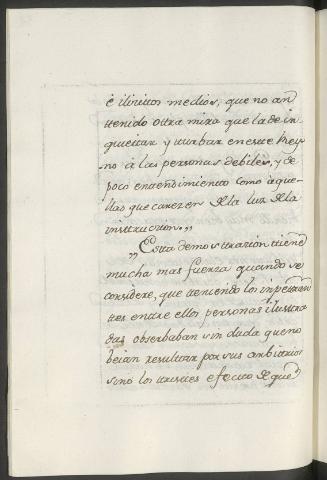 é ilicitos medios, que no an
tenido otra mira que la de in
quietar y turbar en este Rey
no á las personas debiles, y de
poco entendimiento como aque
llas que carezen de la luz de la
instruccion.,,
,,Esta demostrazion tiene
mucha mas fuerza quando se
considere, que teniendo los
tres entre ellos personas ilustra
das obserbaban sin duda que no
beian resultar por sus arbitrios
sinó los tristes efectos de que